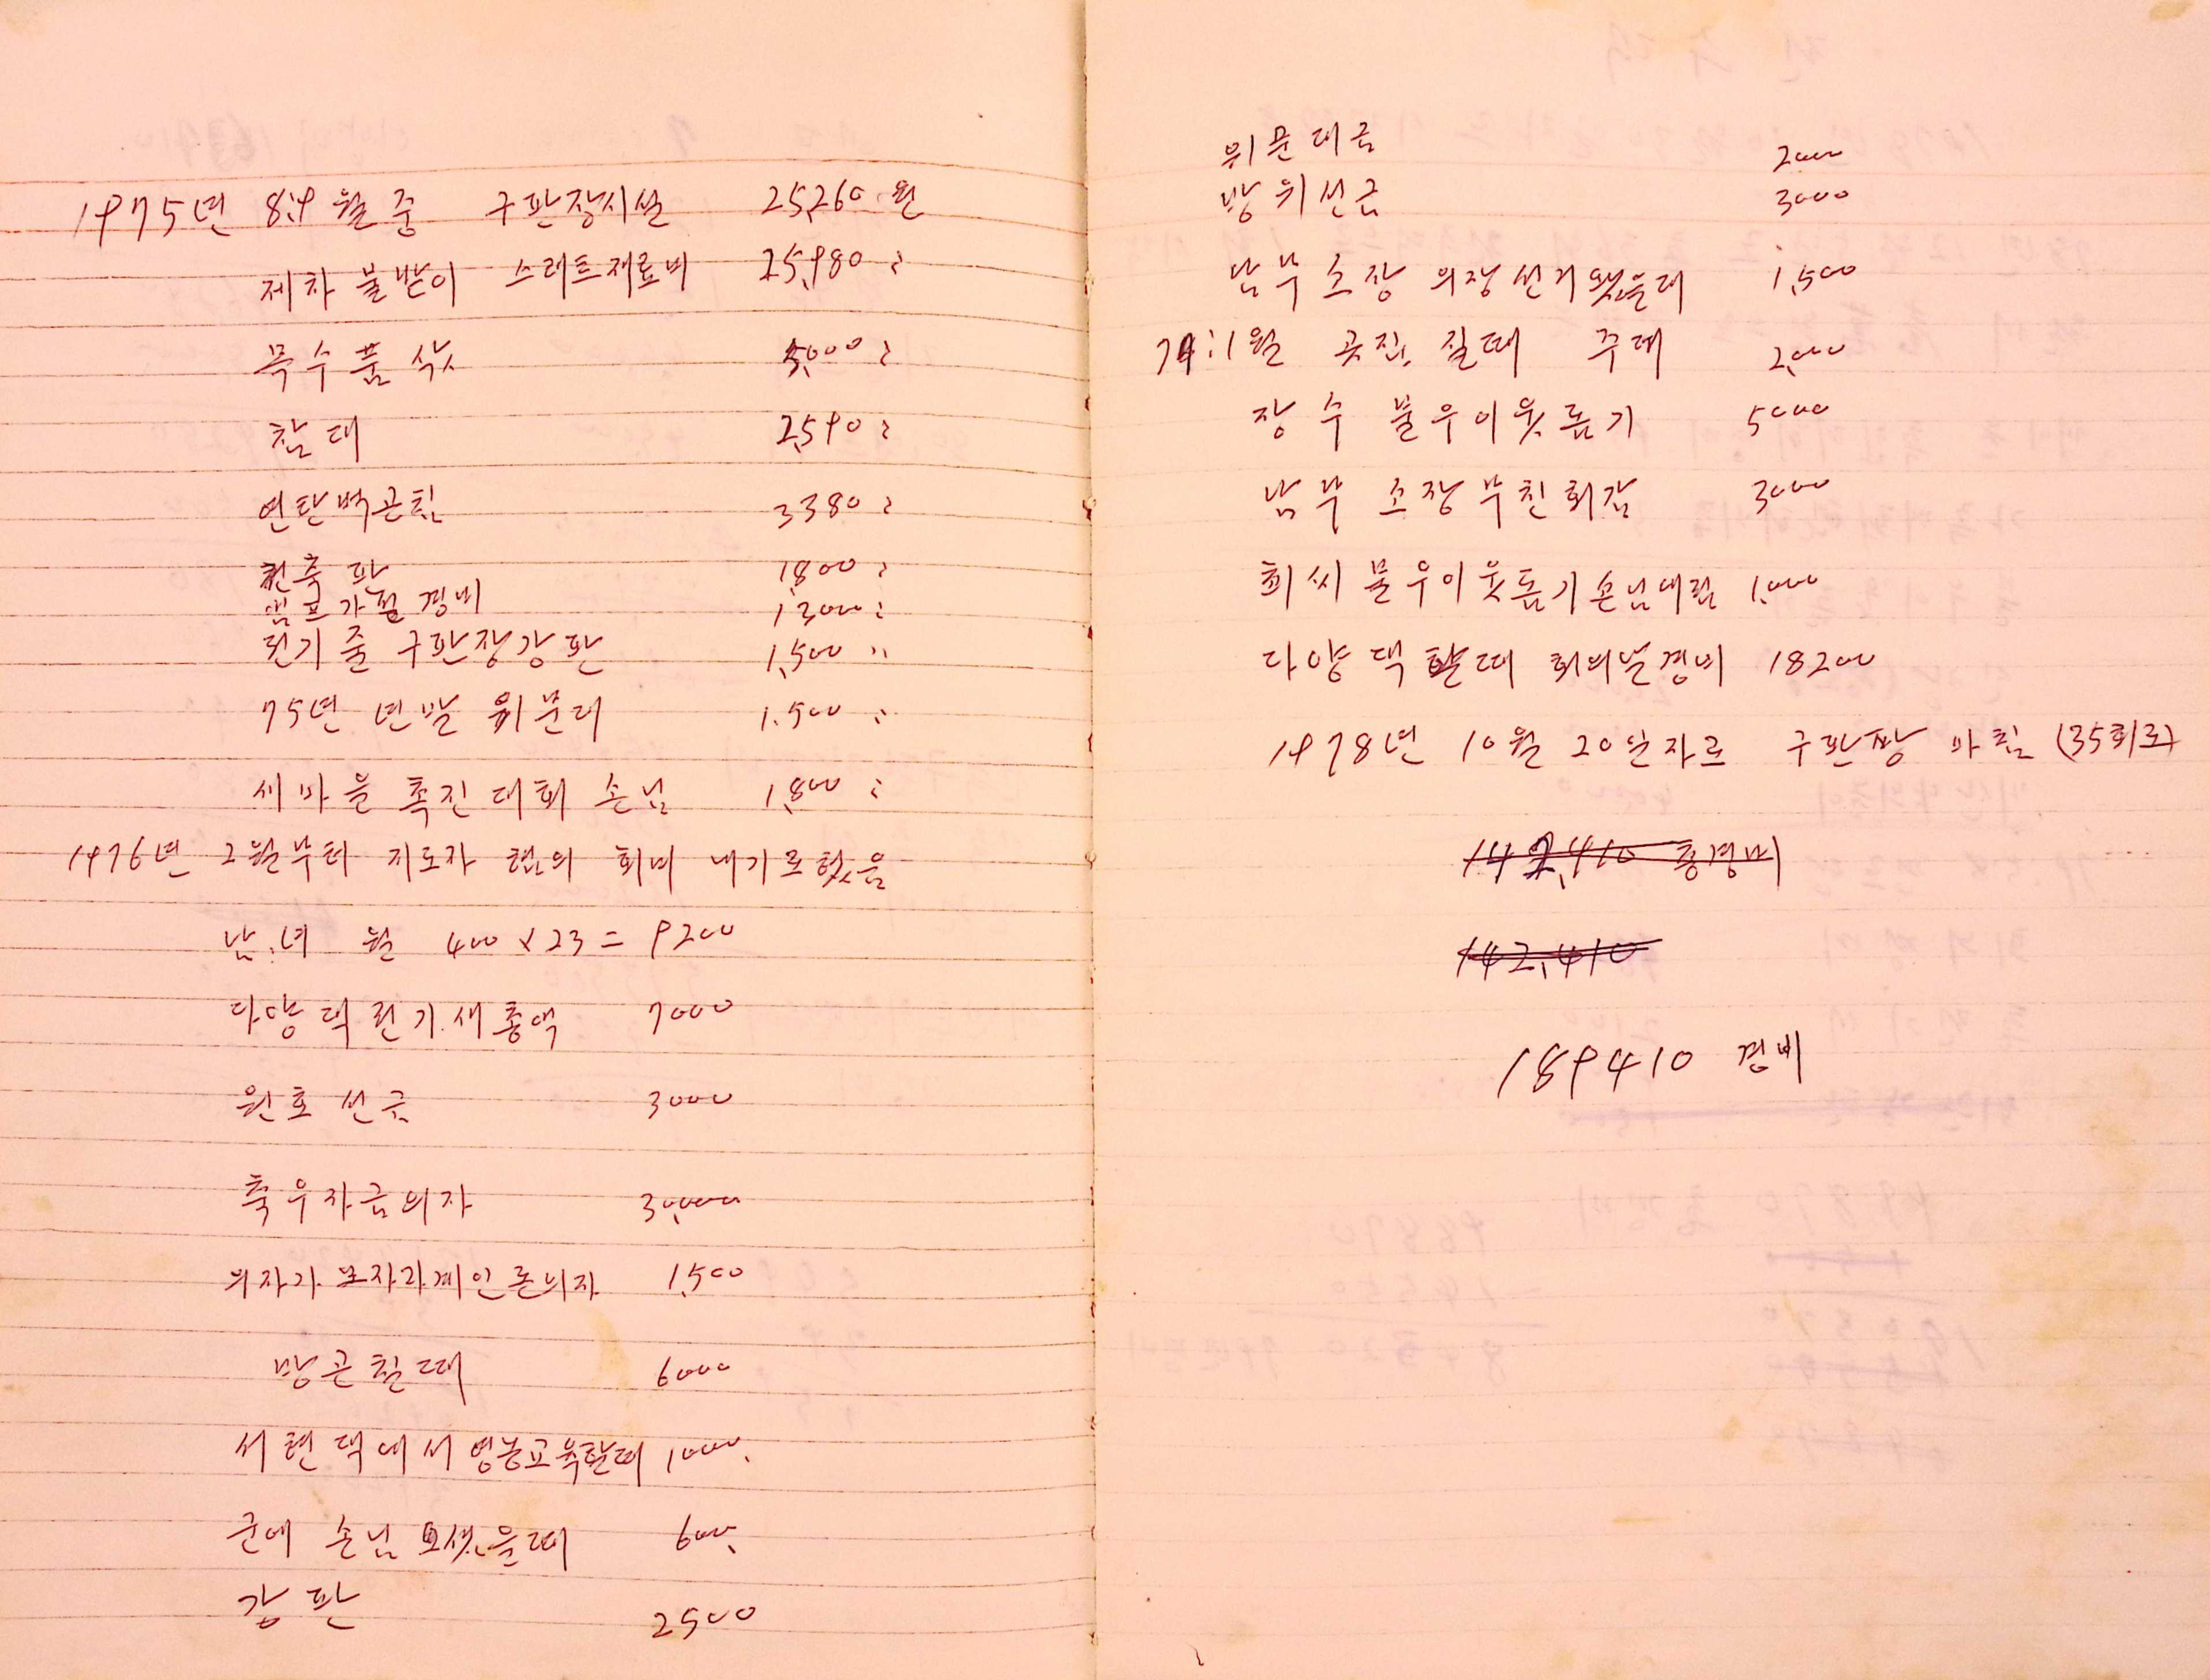 1975년 8.9월 중 구판장시설 25,260.원
제차 불받이 스레트재료비 25,980 〃
목수품삯 5,000 〃
참대 2,590 〃
연탄벽곤침 3380 〃
건축판 1,800 〃
앰프가설경비 1,300 〃
전기줄 구판장강판 1,500 〃
75년 년말 위문대 1.500 〃
새마을 촉진대회 손님 1,800 〃
1976년 2월부터 지도자 협의 회비 내기로했음
남.녀 월 400 x 23 = 9200
다양댁전기.새총액 7000
원호성금 3000
축우자금의자 30,000
의자가모자라게인돈의자 1,500
방곤칠때 6000
서현댁에서 영농교육할때 1000.
군에 손님 모셨을때 600.
강판 2500
위문대금 2000
방위성금 3000
남부소장 의장선거했을때 1,500
:1월 곳집.질때 주대 2,000
장수 불우이웃돕기 5000
남부 소장부친회갑 3000
희씨 불우이웃돕기손님대립 1,000
다양댁할때 회의날경비 18200
1978년 10월 20일자로 구판짱 마침 (35회로)
142,410 총경비
142,410
189410 경비